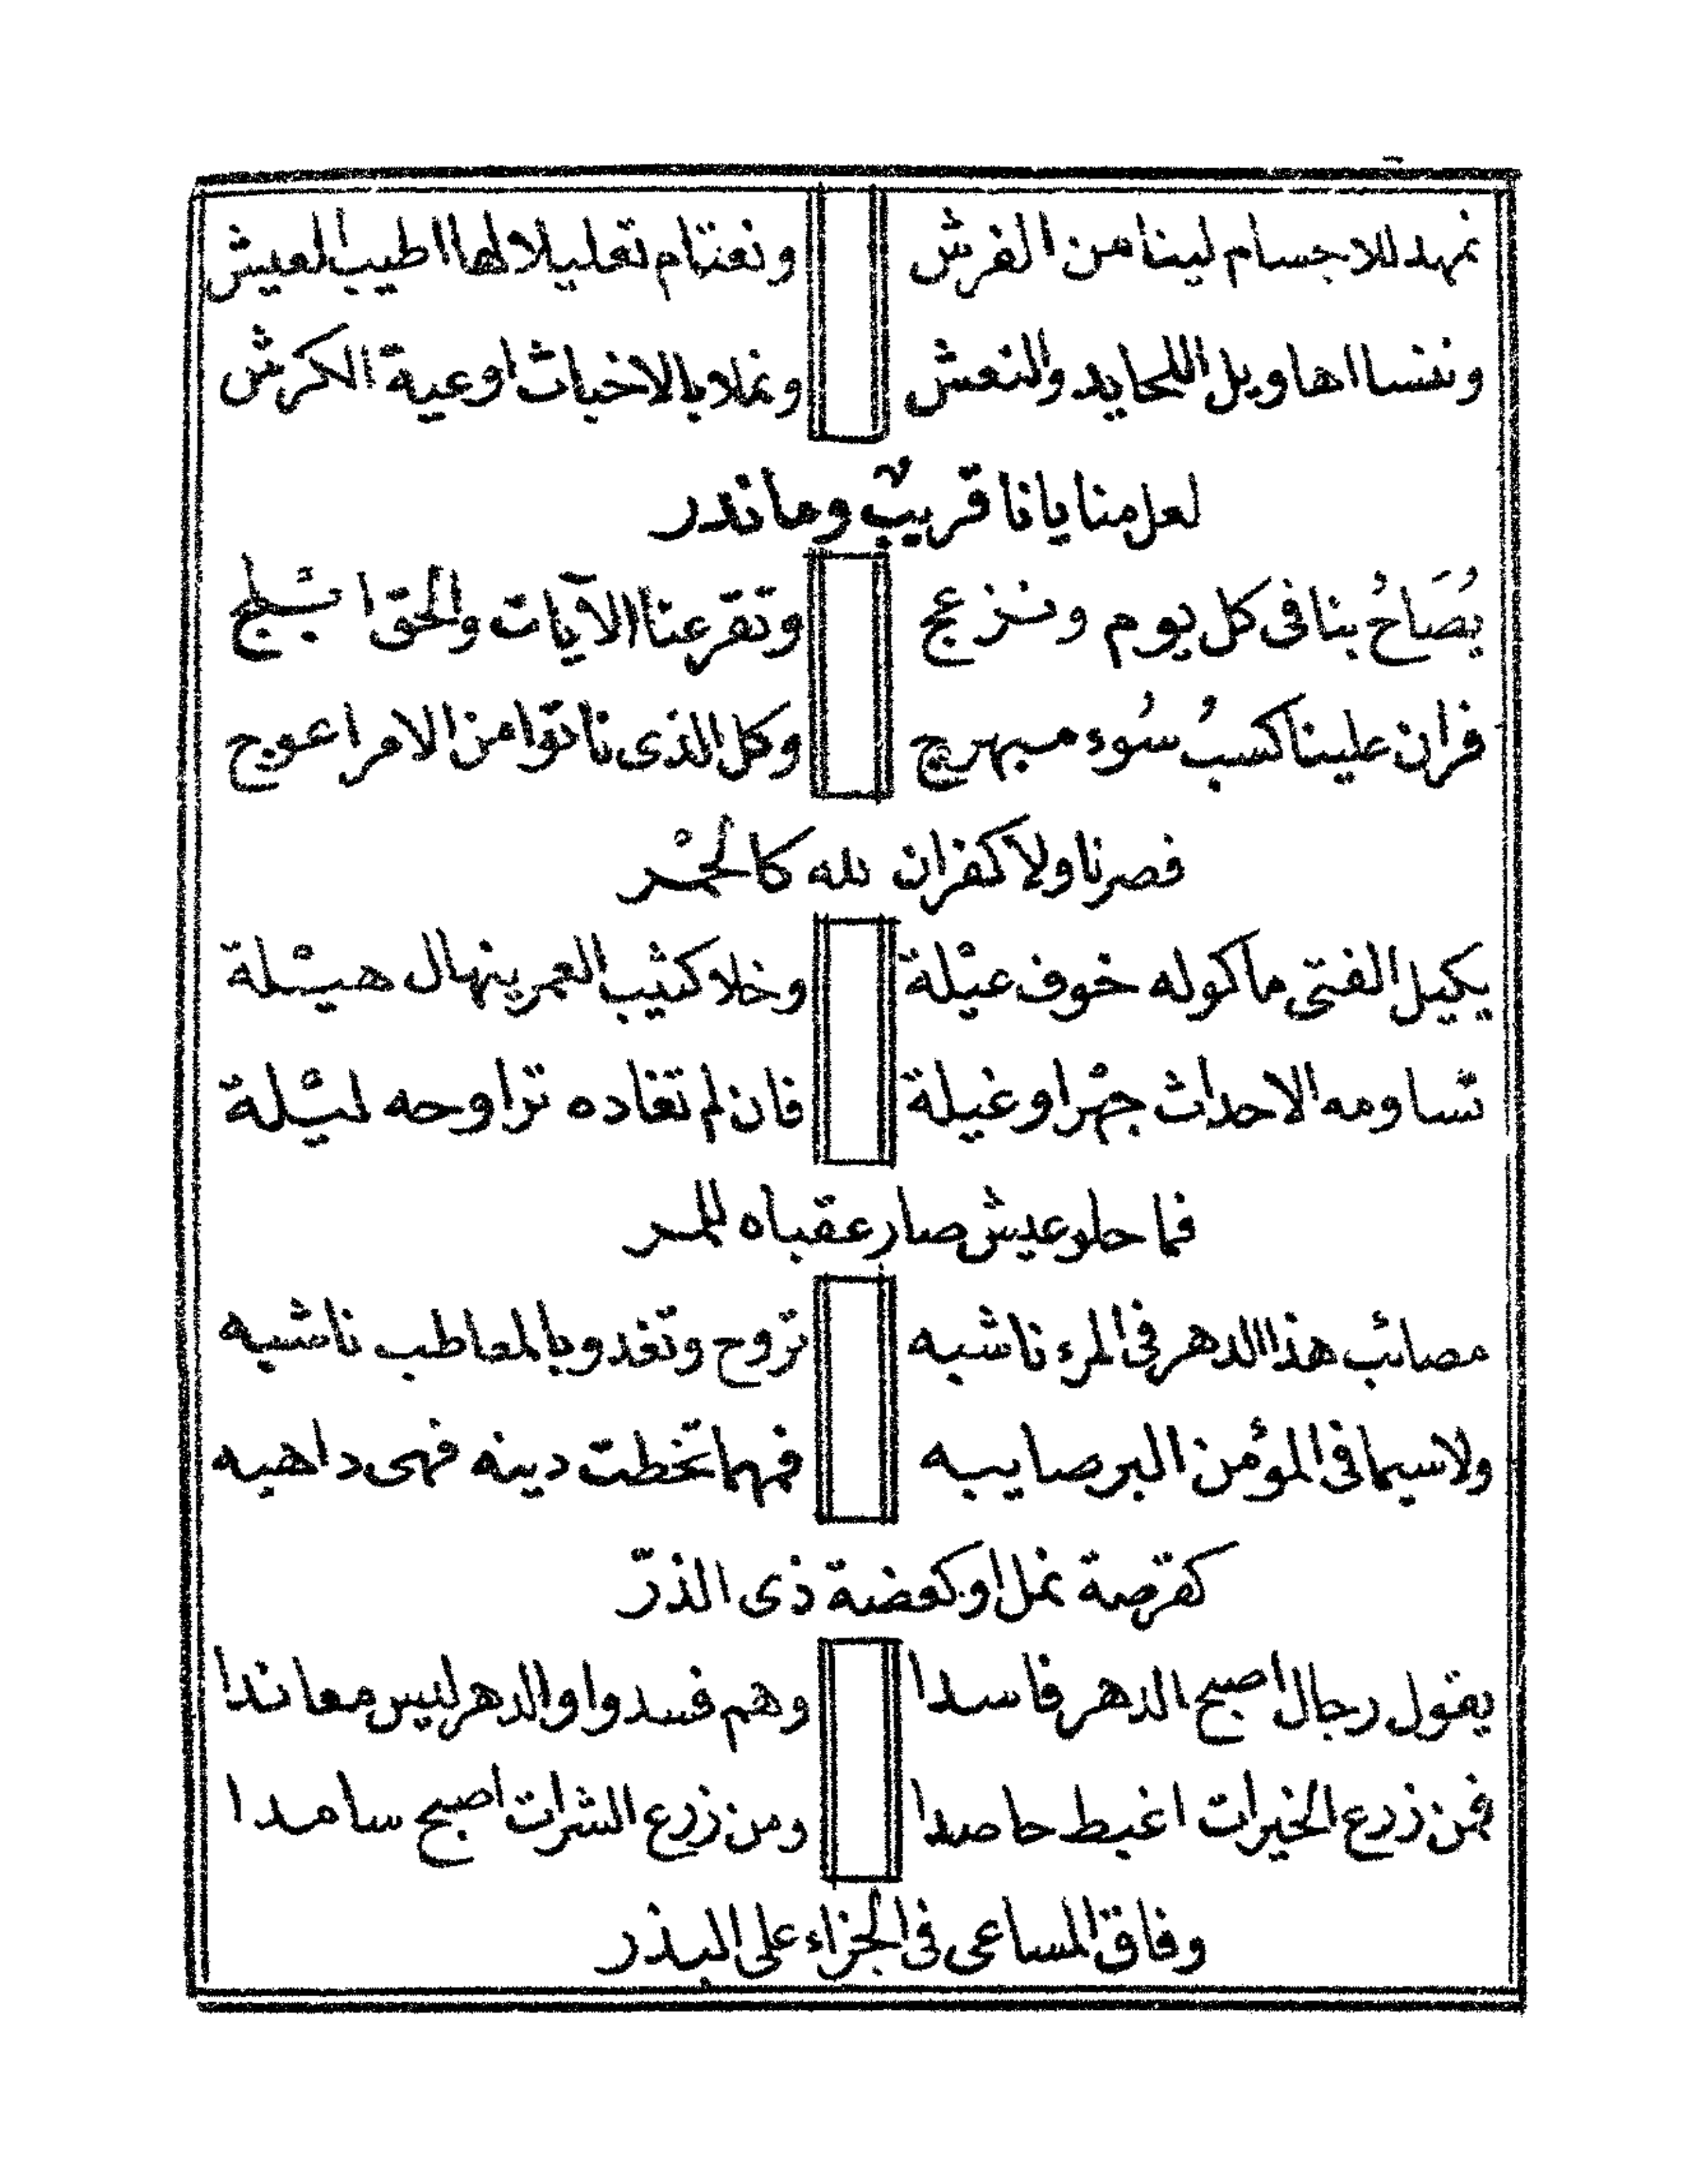 نمهد للاجسام لينا من الفرش ونعتام تعليلا لها اطيب العيش
وننسا اهاويل اللحايد والنعش ونملا بالاخباث اوعية الكرش
لعل منايانا قريبٌ وما ندر
يُصَاحُ بنا فى كل يوم ونزعج وتقرعنا الآيات والحق ابْلج
فران علينا كسبُ سُوء مبهرج وكل الذى ناتوا من الامر اعوج
فصرنا ولا كفران لله كالحمْر
يكيل الفتى ماكوله خوف عيْلة وخلا كثيب العمر ينهال هيْلة
تساومه الاحداث جهْرا وغيلة فان لم تغاده تراوحه ليْلة
فما حلو عيش صار عقباه للمر
مصائب هذا الدهر فى المرء ناشبه تروح وتغدو بالمعاطب ناشبه
ولاسيما فى المؤمن البر صايبه فمهما تخطت دينه فهى داهبه
كقرصة نمل او كعضة ذى الذرّ
يقول رجال اصبح الدهر فاسدا وهم فسدوا والدهر ليس معاندا
فمن زرع الخيرات اغبط حاصدا ومن زرع الشرات اصبح سامدا
وفاق المساعى فى الجزاء على البذر